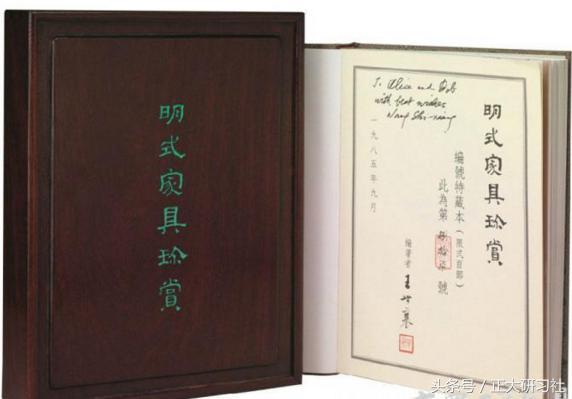 明式家具珍賞
To Alice and Bob
with best wishes
Wang Shi-xiang
明式家具珍賞
編號特藏本（限弍百部）
此為第 拾 號
編著者 王世襄
一九八五年九月
头条号 / 正大研习社